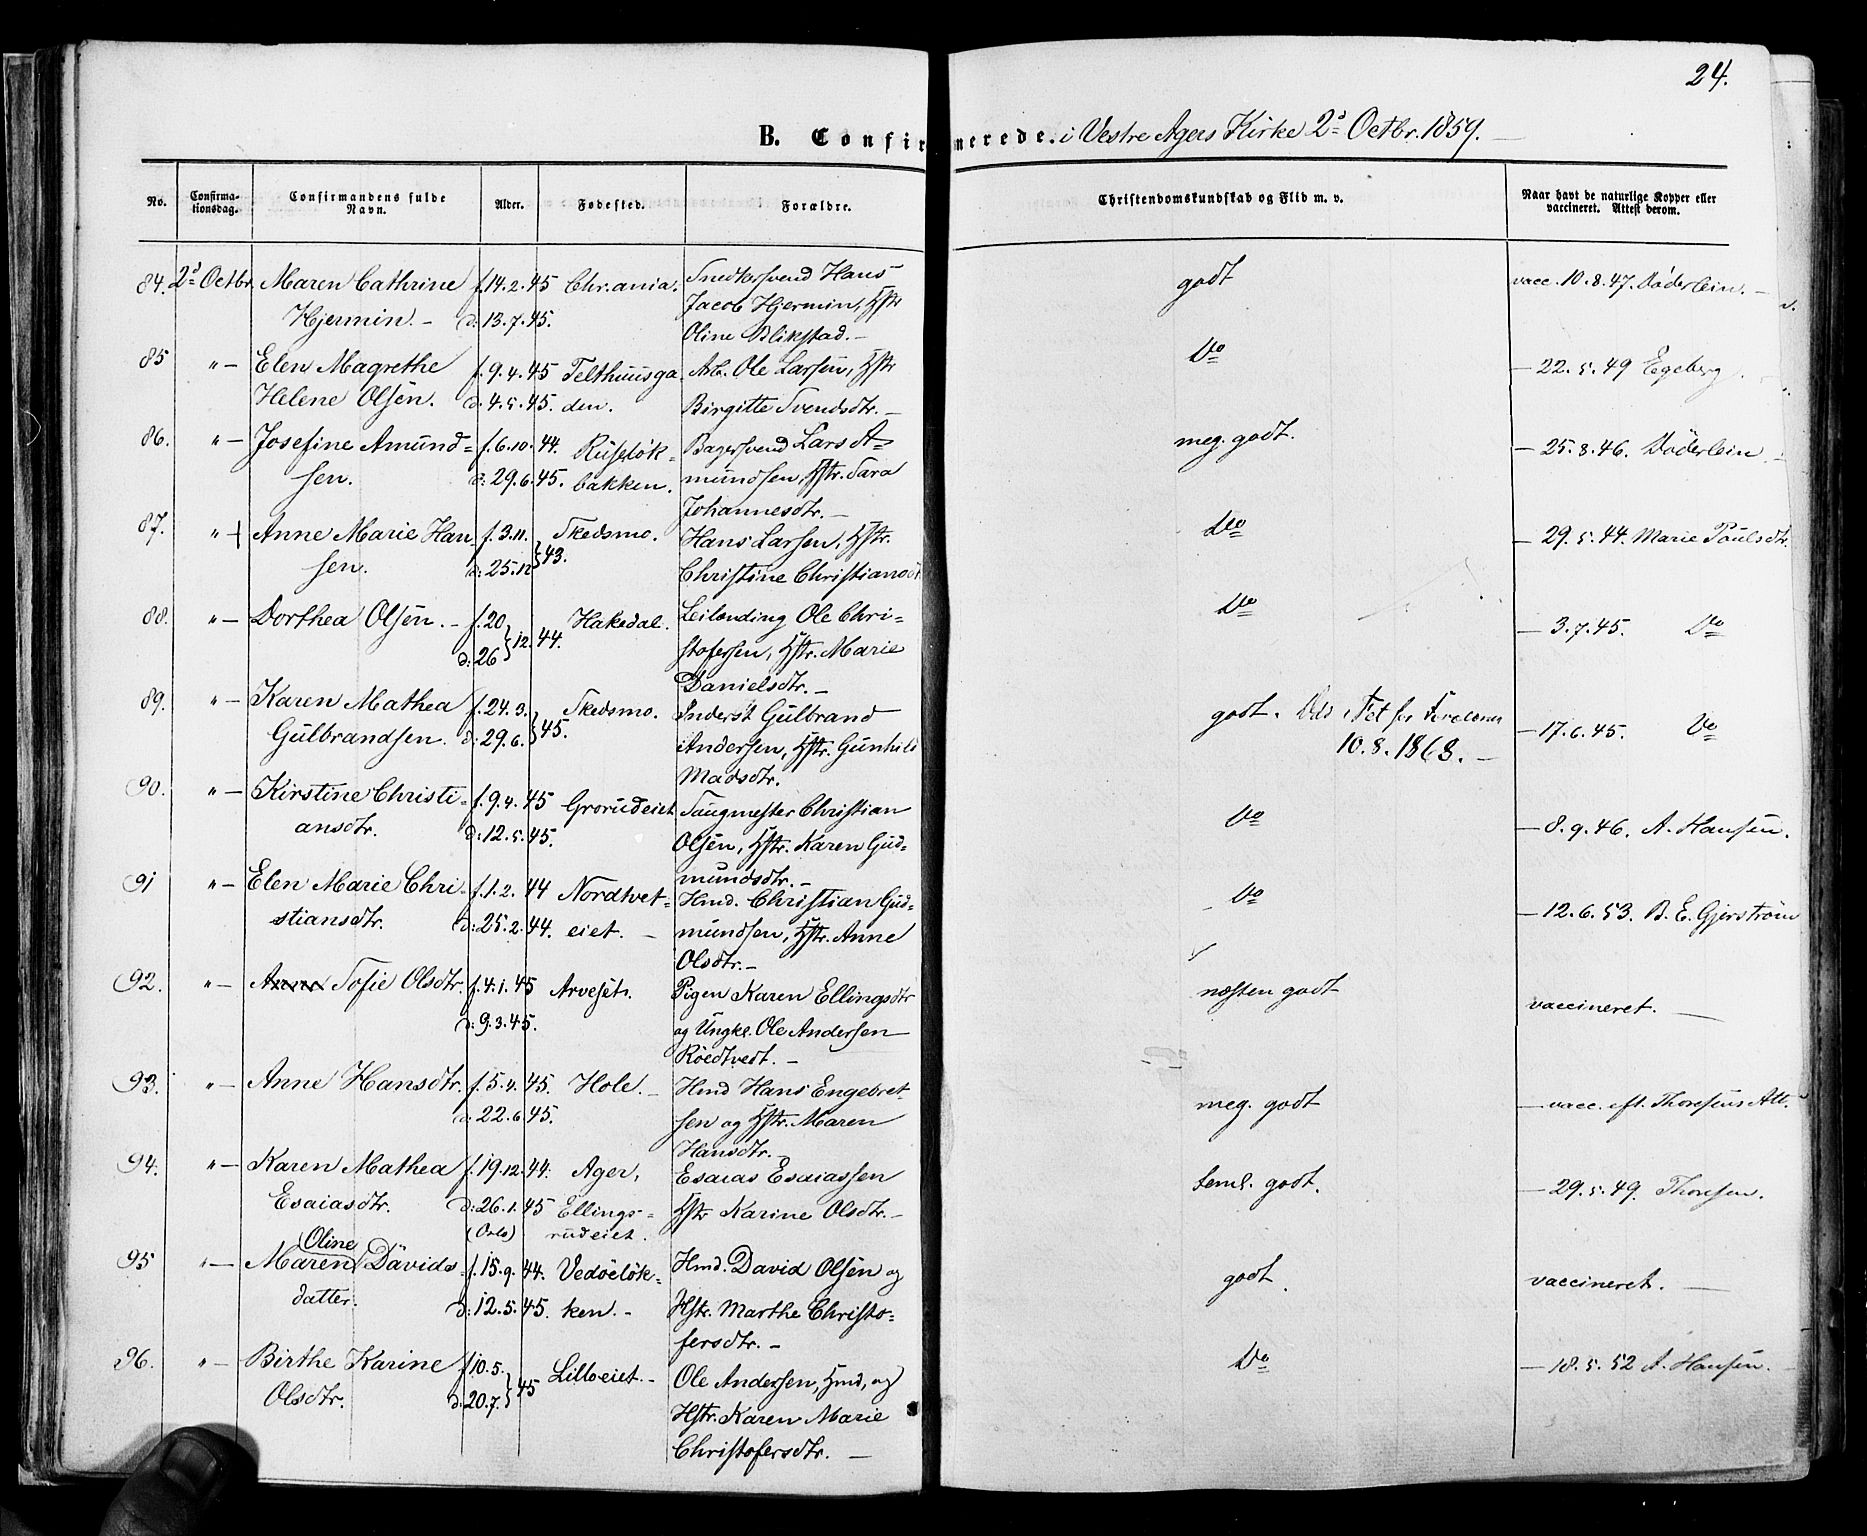 24.
B. Confirmerede. i Vestre Agers Kirke 2d Octbr. 1859. —
No.
Confirmationsdag.
Confirmandens fulde Navn.
Alder.
Fødested.
Forældre.
Christendomskundskab og Flid m. v.
Naar havt de naturlige Kopper eller vaccineret. Attest derom.
84. 2d Octbr. Maren Cathrine f. 14.2.45 Chr.ania. Snedkersvend Hans godt vacc. 10.8.47. Døderlein. —
Hjermin. — d: 13.7.45. Jacob Hjermin, Hstr
Oline Blikstad. —
85 " — Elen Magrethe f. 9.4.45 Telthuusga Arb. Ole Larsen, Hstr Do — 22.5.49 Egeberg.
Helene Olsen. d. 4.5.45. den. Birgitte Svendsdtr. —
86. " — Josefine Amund= f. 6.10.44. Ruseløk= Bagersvend Lars A= meg. godt. — 25.8.46. Døderlein. —
sen. d: 29.6.45. bakken. mundsen, Hstr. Sara
Johannesdtr. —
87. " + Anne Marie Han= f. 3.11. Skedsmo. Hans Larsen, Hstr. Do — 29.5.44. Marie Paulsdtr.
sen. d: 25.12 } 43. Christine Christiansdtr
88. " — Dorthea Olsen. — f. 20 Hakedal. Leilending Ole Chri= Do — 3.7.45. Do
d: 26 } 12. 44. stofersen, Hstr. Marie
Danielsdtr. —
89. " — Karen Mathea f. 24.3. Skedsmo. Inderst Gulbrand godt. Uds. i Fet for 10.8.1863. — — 17.6.45. Do
Gulbrandsen. d: 29.6. } 45. Andersen, Hstr. Gunhild
Madsdtr.
90. " — Kirstine Christi= f. 9.4.45 Grorudeiet Saugmester Christian Do — 8.9.46. A. Hansen.
ansdtr. d: 12.5.45. Olsen, Hstr. Karen Gud=
mundsdtr. —
91 " — Elen Marie Chri= f. 1.2.44 Nordtvet= Hmd. Christian Gud= Do — 12.6.53. B. E. Gjerstrøm
stiansdtr. d: 25.2.44. eiet. — mundsen, Hstr. Anne
Olsdtr. —
92. " — Anne Sofie Olsdtr. f. 4.1.45 Arveset. Pigen Karen Ellingsdtr næsten godt vaccineret. —
d: 9.3.45. og Ungk. Ole Andersen
Röedtvedt. —
93. " — Anne Hansdtr. f. 5.4.45. Hole. — Hmd Hans Engebret meg. godt — vacc. eft. Thoresens Att.
d: 22.6.45. sen og Hstr. Maren
Hansdtr. —
94. " — Karen Mathea f. 19.12.44. Ager, Esaias Esaiassen teml. godt. — 29.5.49. Thoresen.
Esaiasdtr. d: 26.1.45 Ellings= Hstr Karine Olsdtr. —
(Oslo) rudeiet.
Oline
95 " — Maren Davids= f. 15.9.44. Vedøeløk= Hmd. David Olsen og godt. vaccineret. —
datter. d: 12.5.45. ken. — Hstr. Marthe Christo=
fersdtr. —
96. " — Birthe Karine f. 10.5. Lilloeiet. — Ole Andersen, Hmd, og Do — 18.5.52 A. Hansen. —
Olsdtr. d: 20.7. } 45 Hstr. Karen Marie
Christofersdtr. —